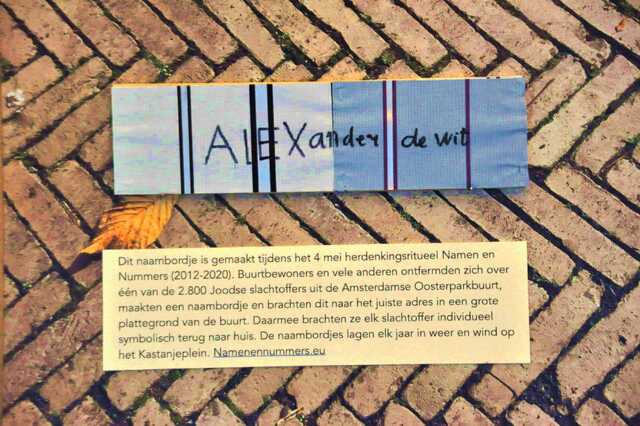 ALEXander de wit
Dit naambordje is gemaakt tijdens het 4 mei herdenkingsritueel Namen en
Nummers (2012-2020). Buurtbewoners en vele anderen ontfermden zich over
één van de 2.800 Joodse slachtoffers uit de Amsterdamse Oosterparkbuurt,
maakten een naambordje en brachten dit naar het juiste adres in een grote
plattegrond van de buurt. Daarmee brachten ze elk slachtoffer individueel
symbolisch terug naar huis. De naambordjes lagen elk jaar in weer en wind op
het Kastanjeplein. Namenennummers.eu